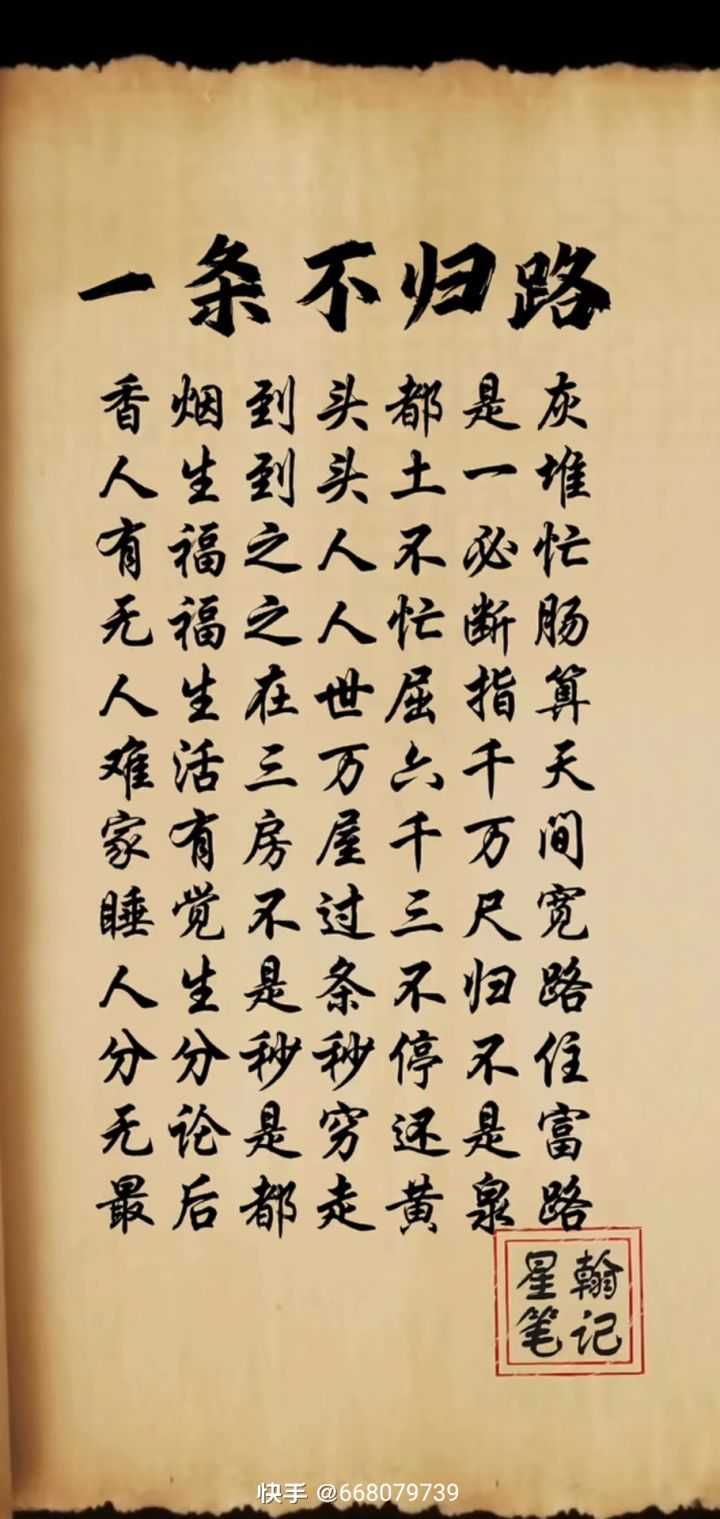 一条不归路
香烟到头都是灰
人生到头土一堆
有福之人不必忙
无福之人忙断肠
人生在世屈指算
难活三万六千天
家有房屋千万间
睡觉不过三尺宽
人生是条不归路
分分秒秒停不住
无论是穷还是富
最后都走黄泉路
星翰
笔记
快手 @668079739